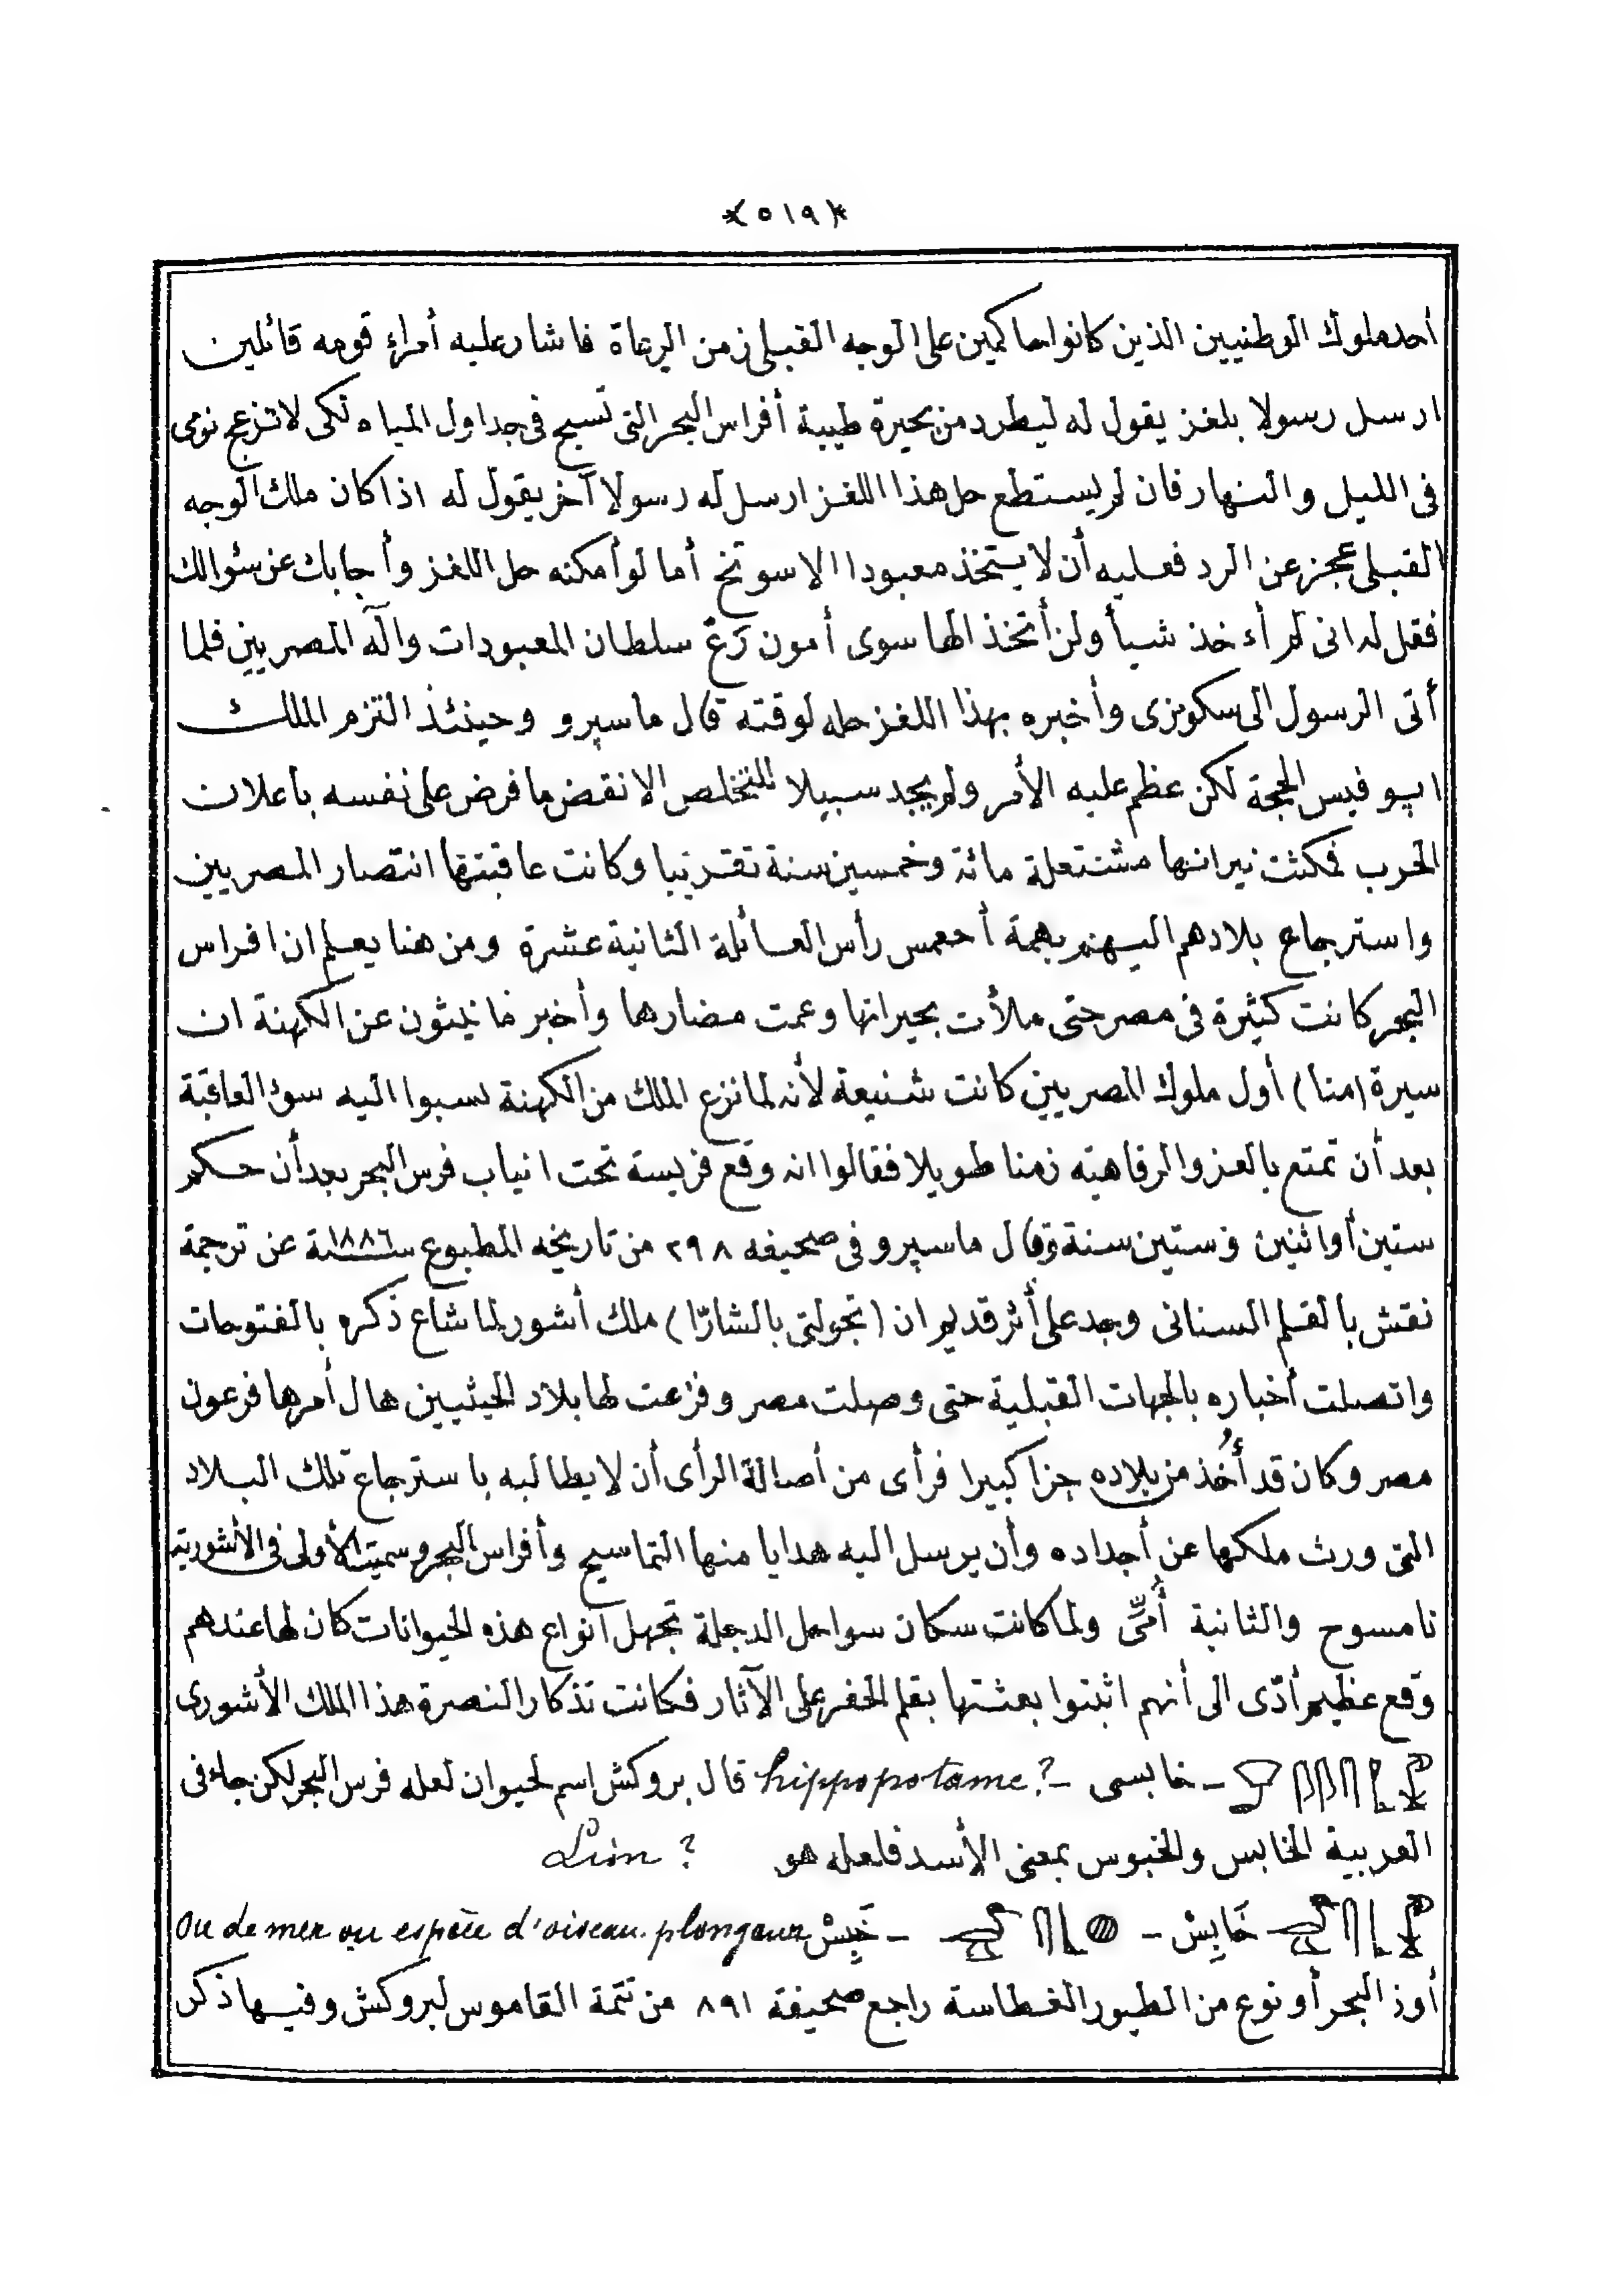 ﴿٥١٩﴾
أحد ملوك الوطنيين الذين كانوا حاكمين على الوجه القبلى زمن الرعاة فاشار عليه أمراء قومه قائلين
ارسل رسولا بلغز يقول له ليطرد من بحيرة طيبة أفراس البحر التى تسبح فى جداول المياه لكى لا تزعج نومى
فى الليل والنهار فان لم يستطع حل هذا اللغز ارسل له رسولا آخر يقول له اذا كان ملك الوجه
القبلى عجز عن الرد فعليه أن لا يتخذ معبودا الا سوتخ أما لو أمكنه حل اللغز وأجابك عن سؤالك
فقل له انى لم أءخذ شيأ ولن أتخذ الها سوى أمون رع سلطان المعبودات واله المصريين فلما
أتى الرسول الى سكونزى وأخبره بهذا اللغز حله لوقته قال ماسپرو وحينئذ التزم الملك
اپوفيس الحجة لكن عظم عليه الأمر ولم يجد سبيلا للتخلص الا نقض ما فرض على نفسه باعلان
الحرب فمكثت نيرانها مشتعلة مائة وخمسين سنة تقريبا وكانت عاقبتها انتصار المصريين
واسترجاع بلادهم اليهم بهمة أحعمس رأس العائلة الثانية عشرة ومن هنا يعلم ان افراس
البحر كانت كثيرة فى مصر حتى ملأت بحيراتها وعمت مضارها وأخبر مانيثون عن الكهنة ان
سيرة (منا) أول ملوك المصريين كانت شنيعة لأنه لما نزع الملك من الكهنة نسبوا اليه سوء العاقبة
بعد أن تمتع بالعز والرفاهيه زمنا طويلا فقالوا انه وقع فريسة تحت انياب فرس البحر بعد أن حكم
ستين أو اثنين وستين سنة وقال ماسپرو فى صحيفه ٢٩٨ من تاريخه المطبوع سنة ١٨٨٦ عن ترجمة
نقش بالقلم السنانى وجد على أثر قديم ان (تجولتى بالشارّا) ملك أشور لما شاع ذكره بالفتوحات
واتصلت أخباره بالجهات القبلية حتى وصلت مصر وفزعت لها بلاد الحيثيين هال أمرها فرعون
مصر وكان قد أُخذ من بلاده جزأ كبيرا فرأى من أصالة الرأى أن لا يطالبه باسترجاع تلك البلاد
التى ورث ملكها عن أجداده وأن يرسل اليه هدايا منها التماسيح وأفراس البحر وسميت الأولى فى الأشورية
نامسوح والثانية أُمِّى ولما كانت سكان سواحل الدجلة تجهل أنواع هذه الحيوانات كان لها عندهم
وقع عظيم أدّى الى أنهم اثبتوا بعثتها بقلم الحفر على الآثار فكانت تذكار النصرة هذا الملك الأشورى
– خابسى – hippopotame? قال بروكش اسم لحيوان لعله فرس البحر لكن جاء فى
العربية الخابس والخبوس بمعنى الأسد فلعله هو Lion ?
خَابِسْ – – خَبِسْ Oie de mer ou espèce d'oiseau plongeur
أوز البحر أو نوع من الطيور الغطاسة راجع صحيفة ٨٩١ من تتمة القاموس لبروكش وفيها ذكر